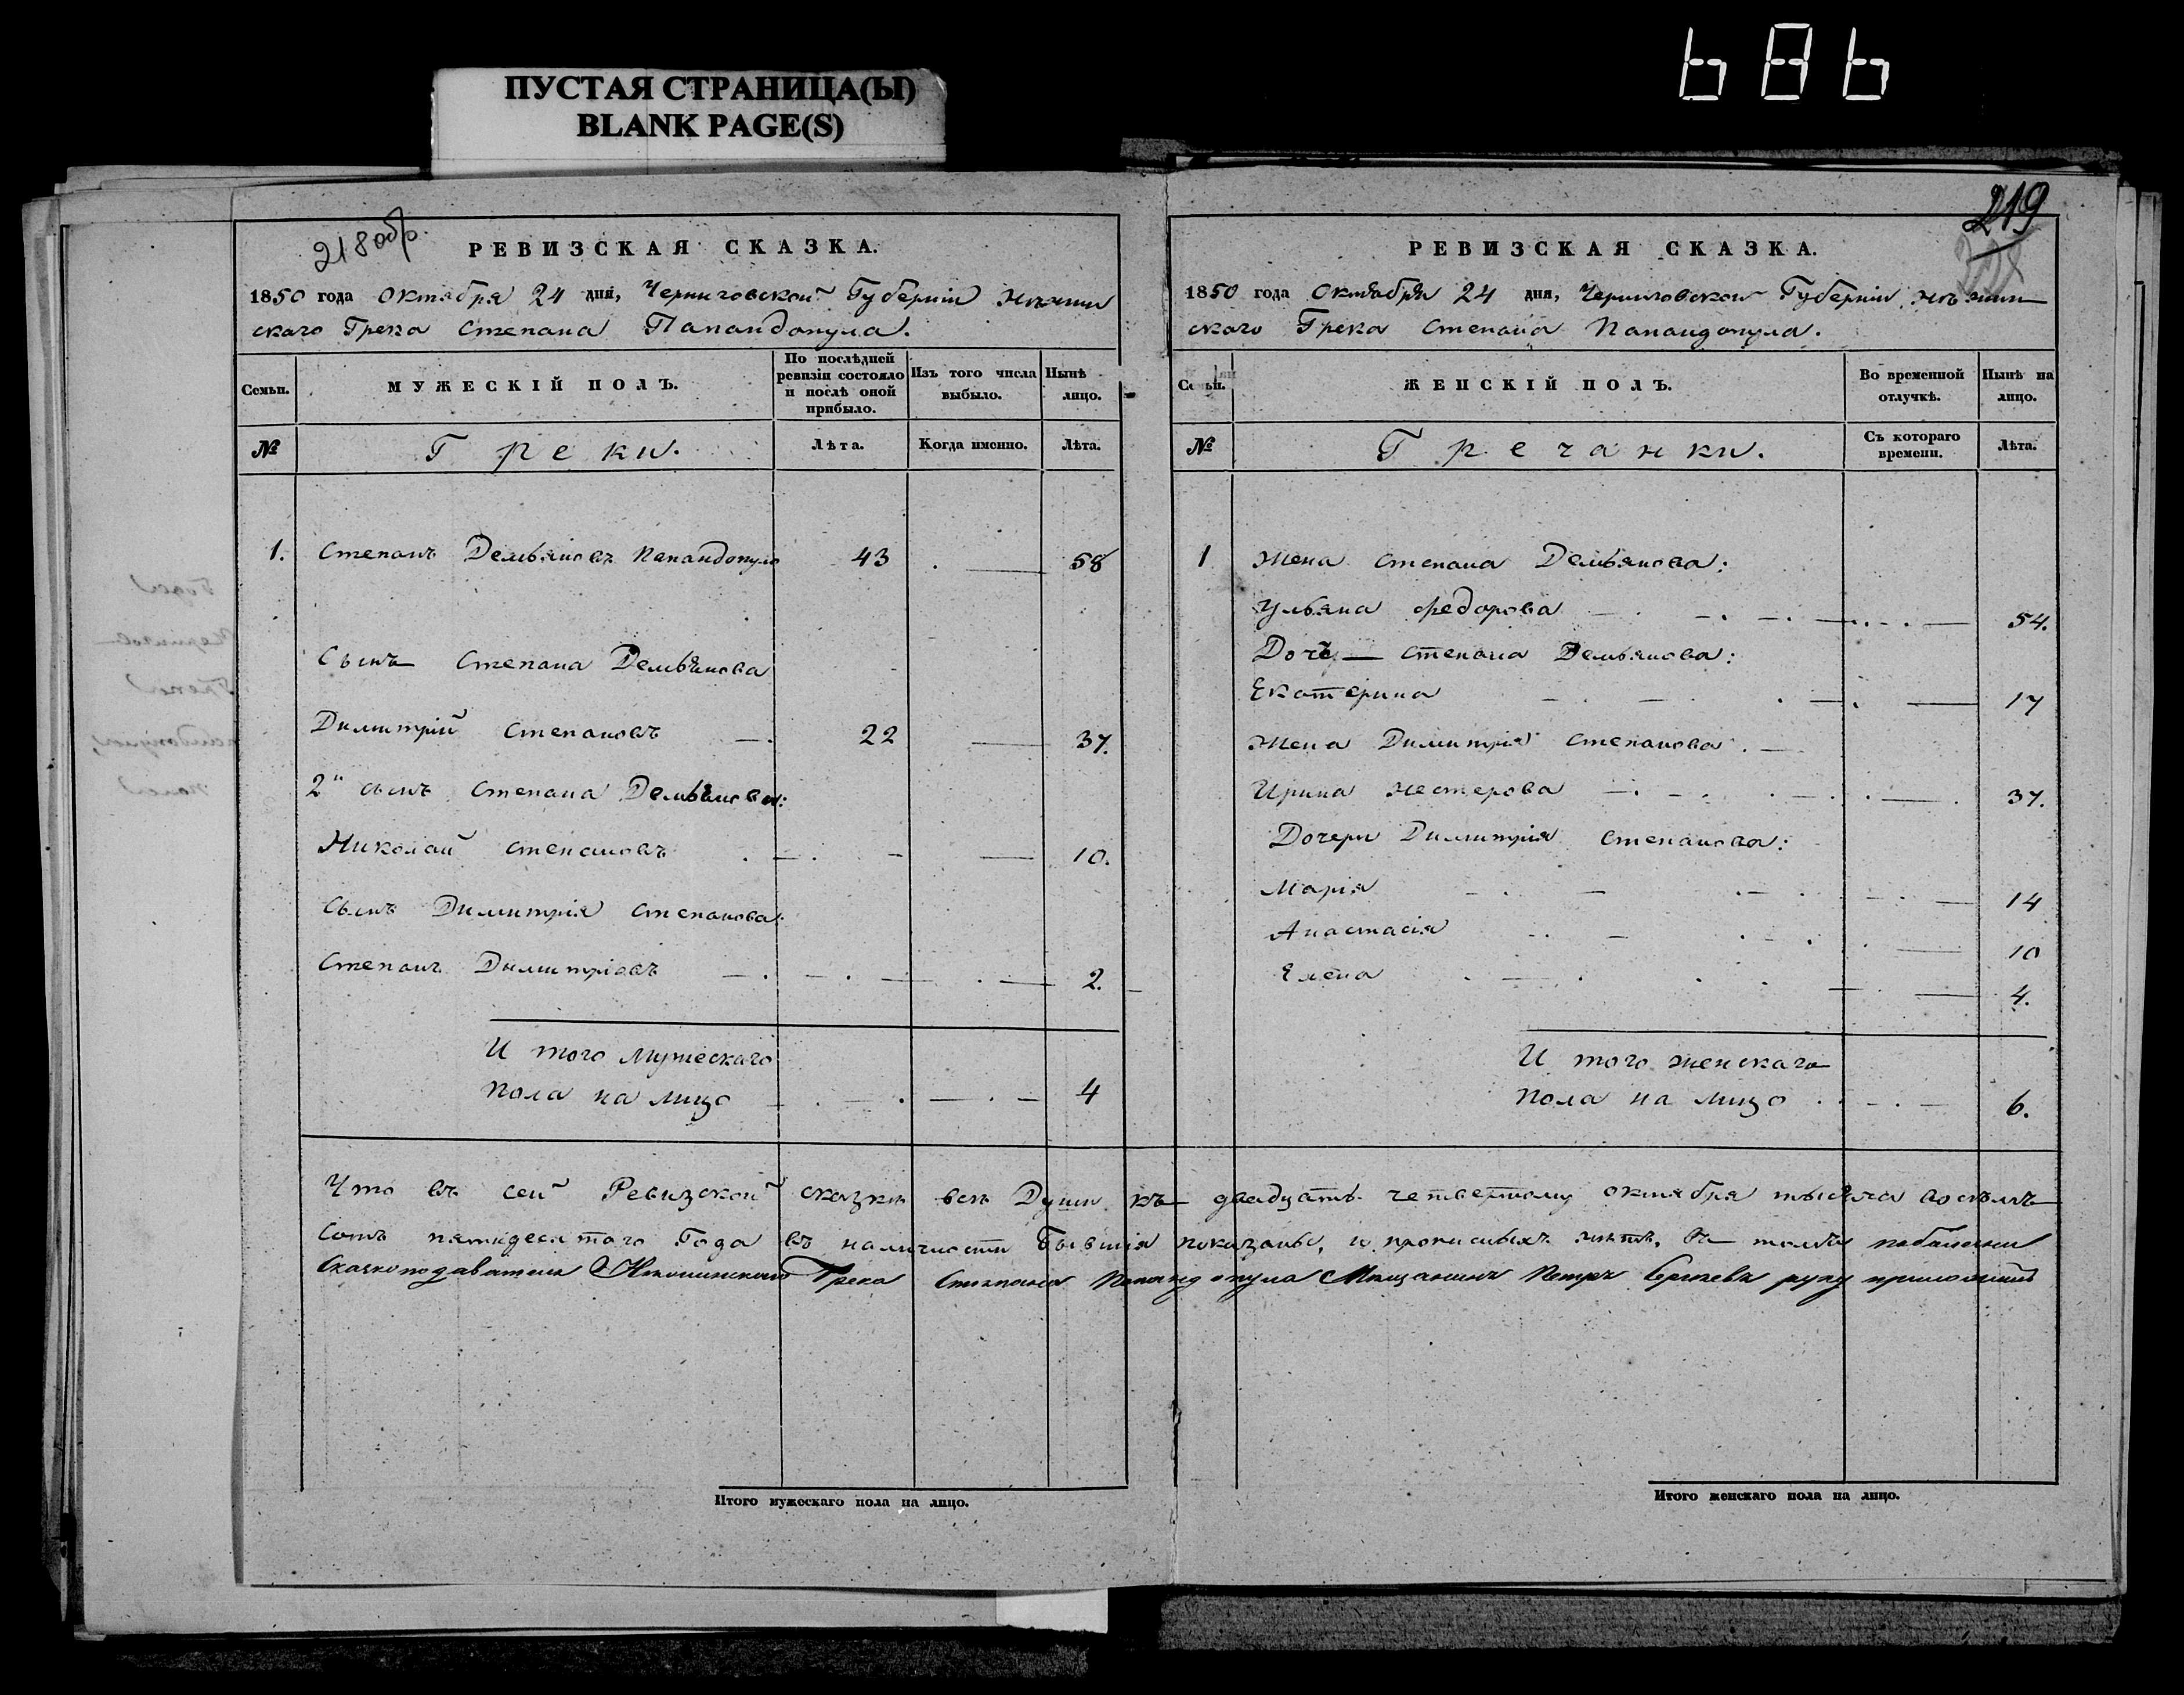 ПУСТАЯ СТРАНИЦА(Ы)
BLANK PAGE(S)
686
218 обр.
РЕВИЗСКАЯ СКАЗКА.
1850 года Октября 24 дня, Черниговской Губерніи Нѣжин
скаго Грека Степана Папандопула.
Семьи.
МУЖЕСКІЙ ПОЛЪ.
По послѣдней ревизіи состояло и послѣ оной прибыло.
Изъ того числа выбыло.
Нынѣ лицо.
№
Греки.
Лѣта.
Когда именно.
Лѣта.
1. Степанъ Демьяновъ Папандопуло 43 — 58
Сынъ Степана Демьянова
Димитрій Степановъ — 22 — 37.
2й сынъ Степана Демьянова:
Николай Степановъ — 10.
Сынъ Димитрія Степанова:
Степанъ Димитріевъ — 2.
И того Мужескаго
пола на лицо — 4
Итого мужескаго пола на лицо.
219
РЕВИЗСКАЯ СКАЗКА.
1850 года Октября 24 дня, Черниговской Губерніи Нѣжин
скаго Грека Степана Папандопула.
Семьи.
ЖЕНСКІЙ ПОЛЪ.
Во временной отлучкѣ.
Нынѣ на лицо.
№
Гречанки.
Съ котораго времени.
Лѣта.
1 Жена Степана Демьянова:
Ульяна Федорова — 54.
Дочь — Степана Демьянова:
Екатерина — 17
Жена Димитрія Степанова. —
Ирина Нестерова — 37.
Дочери Димитрія Степанова:
Марія — 14
Анастасія — 10
Елена — 4.
И того женскаго
пола на лицо — 6.
Итого женскаго пола на лицо.
Что въ сей Ревизской сказки всѣ Души къ двадцать четвертому октября тысяча восѣмъ
сотъ пятидесятаго Года въ наличности Бывшія показаны, и прописныхъ нѣтъ, въ томъ
Сказкоподателя Нѣжинскаго Грека Степана Папандопула Мѣщанинъ Петръ руку приложилъ